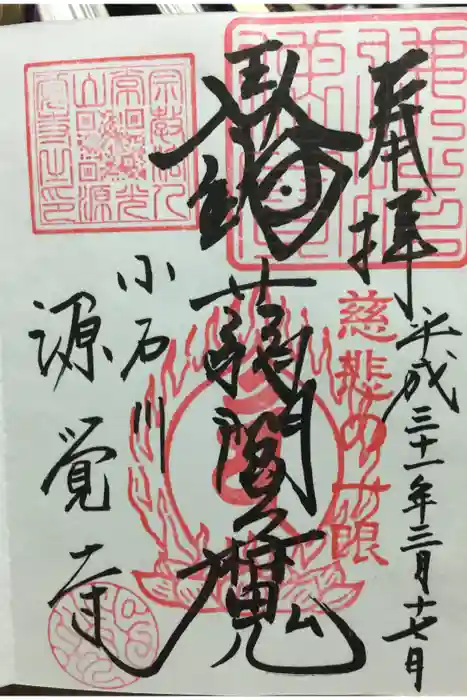 奉拝
平成三十一年三月十七日
慈悲の眼
蒟蒻閻魔
小石川
源覚寺
宗教法人
常光
山源
覚寺之印